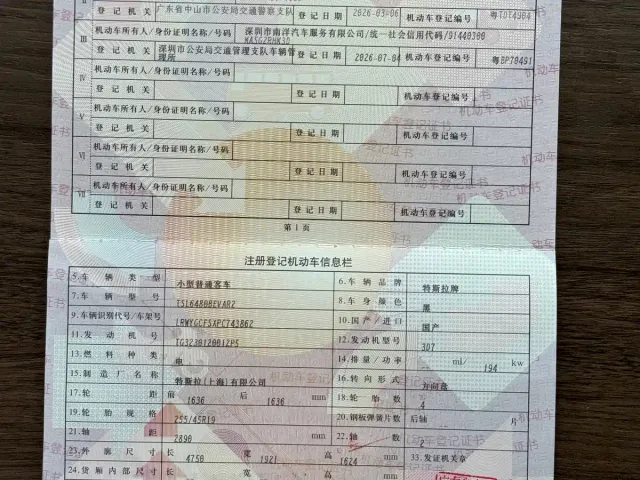 登记机关 广东省中山市公安局交通警察支队 登记日期 2026-03-06 机动车登记编号 粤TDT4904
III 机动车所有人/身份证明名称/号码 深圳市南洋汽车服务有限公司/统一社会信用代码/91440300
登记机关 深圳市公安局交通管理支队车辆管理所 登记日期 2026-07-04 机动车登记编号
IV 机动车所有人/身份证明名称/号码
登记机关 登记日期 机动车登记编号
V 机动车所有人/身份证明名称/号码
登记机关 登记日期 机动车登记编号
VI 机动车所有人/身份证明名称/号码
登记机关 登记日期 机动车登记编号
VII 机动车所有人/身份证明名称/号码
登记机关 登记日期 机动车登记编号
第1页
注册登记机动车信息栏
5.车辆类型 小型普通客车 6.车辆品牌 特斯拉牌
7.车辆型号 TSL6480BEVAR2 8.车身颜色 黑
9.车辆识别代号/车架号 LRWYGCFSXPC743862 10.国产/进口 国产
11.发动机号 TG3230120012P5 12.发动机型号 3D7
13.燃料种类 电 14.排量/功率 ml/ 194 kw
15.制造厂名称 特斯拉(上海)有限公司 16.转向形式 方向盘
17.轮距 前 1636 后 1636 mm 18.轮胎数 4
19.轮胎规格 255/45R19 20.钢板弹簧片数 后轴 片
21.轴距 2890 mm 22.轴数 2
23.外廓尺寸 长 4750 宽 1921 高 1624 mm 33.发证机关章
24.货厢内部尺寸 长 宽 高 mm